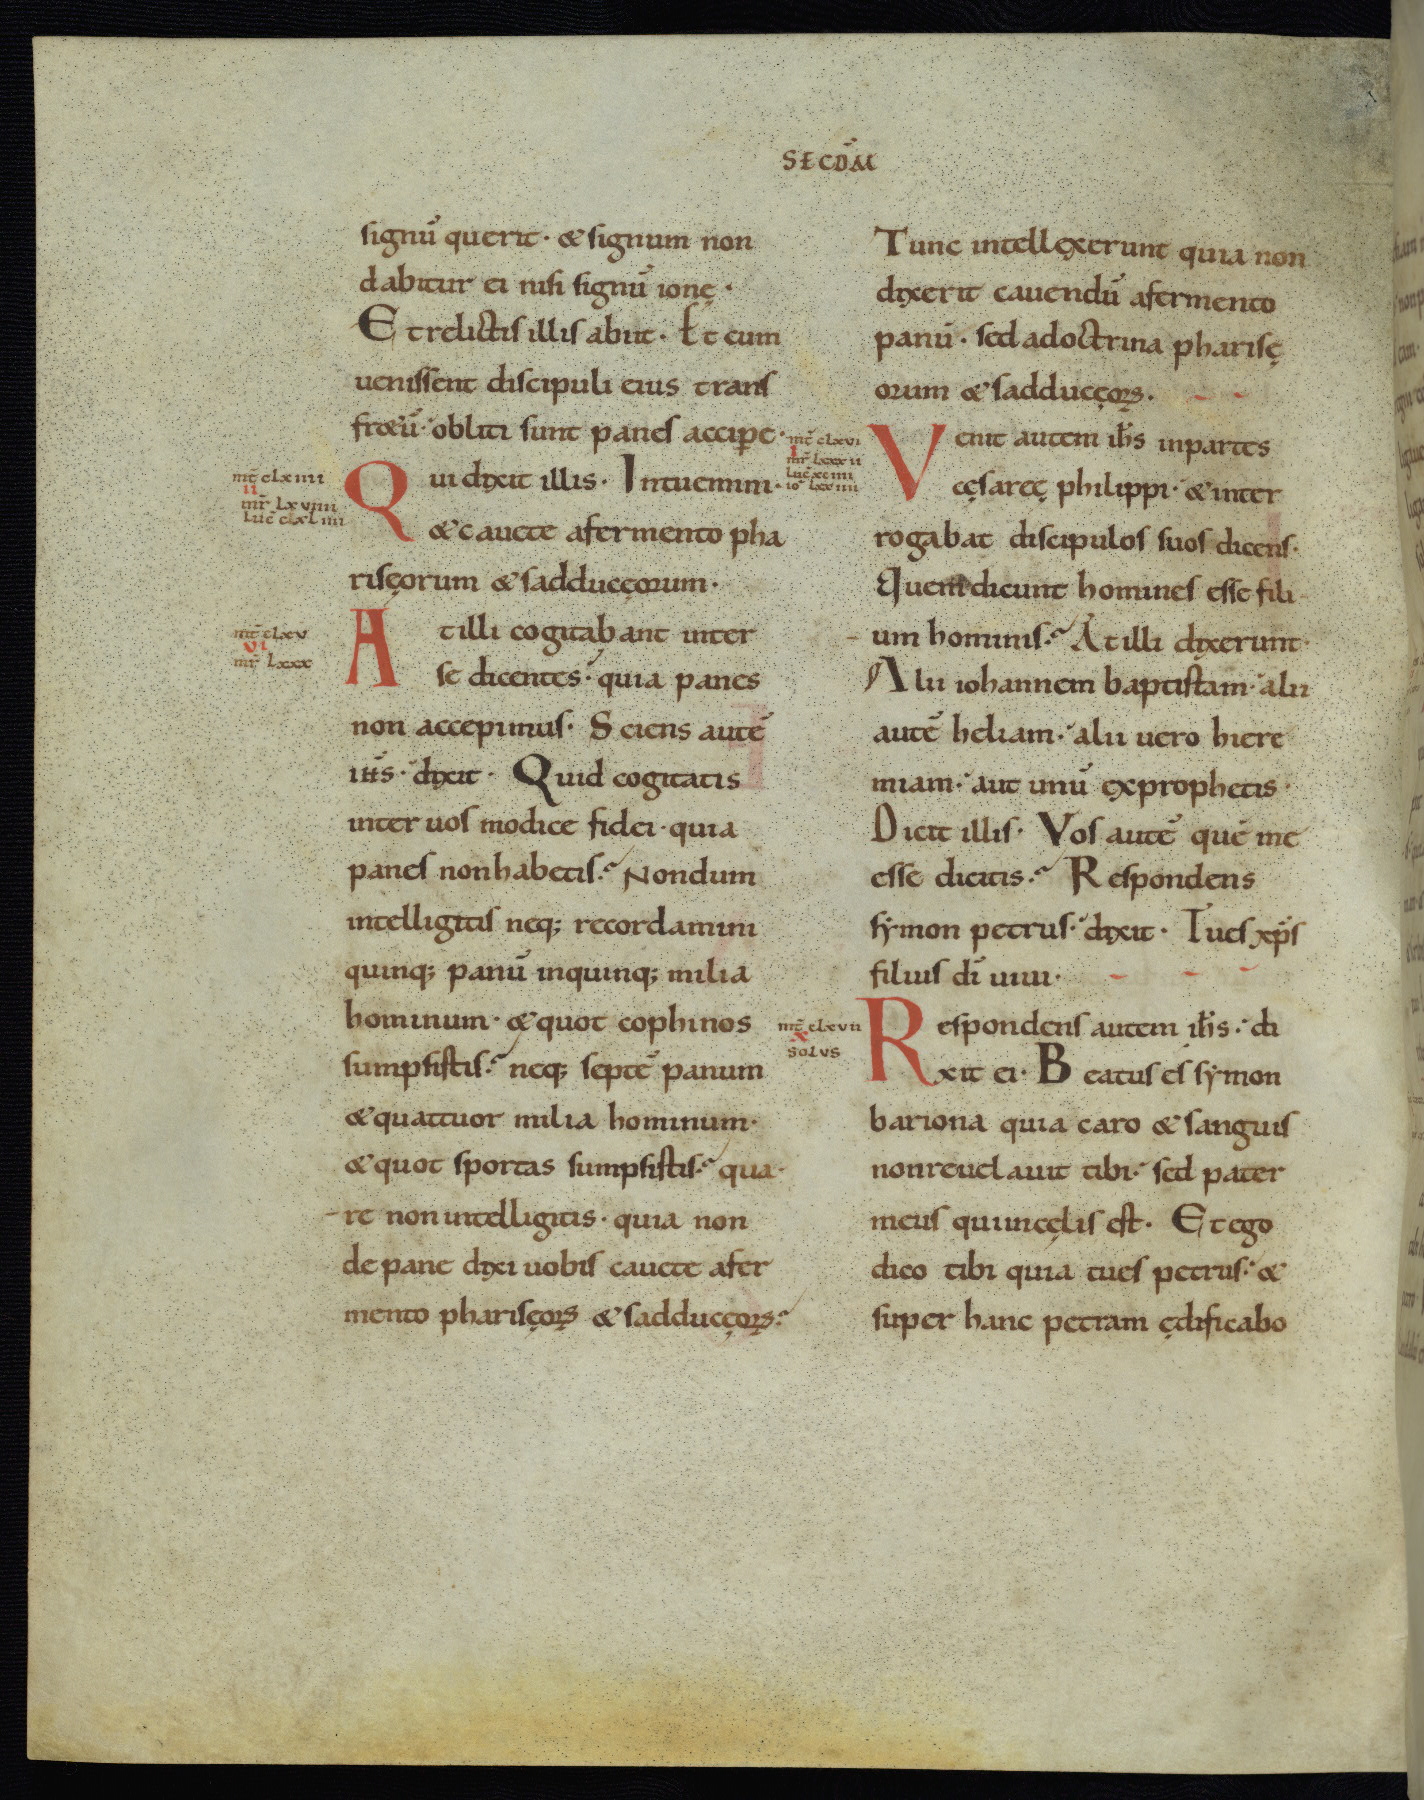 SECDM̄
signū querit· & signum non
dabitur ei nisi signū ionę·
Et relictis illis abiit· Et cum
uenissent discipuli eius trans
fr&ū· obliti sunt panes accipe·
mt̄ clxiiii
ii
mr̄ lxviiii
luc̄ clxliiii
Qui dixit illis· Intuemini·
& cauete a fermento pha
risęorum & sadducęorum·
mt̄ clxv
vi
mr̄ lxxx
At illi cogitabant inter
se dicentes· quia panes
non accepimus· Sciens autē
ih̄s· dixit· Quid cogitatis
inter uos modice fidei· quia
panes non habetis· Nondum
intelligitis neq; recordamini
quinq; panū in quinq; milia
hominum· & quot cophinos
sumpsistis· neq; septē panum
& quattuor milia hominum·
& quot sportas sumpsistis· qua-
re non intelligitis· quia non
de pane dixi uobis cauete a fer
mento pharisęorꝝ & sadducęorꝝ·
Tunc intellexerunt quia non
dixerit cauendū a fermento
panū· sed a doctrina pharisę
orum & sadducęorꝝ·
mt̄ clxvi
i
mr̄ lxxxii
luc̄ xciiii
io lxxiiii
Venit autem ih̄s in partes
cęsareę philippi· & inter
rogabat discipulos suos dicens·
Quem dicunt homines esse fili
um hominis· At illi dixerunt·
Alii iohannem baptistam· alii
autē heliam· alii uero hiere
miam· aut unū ex prophetis·
Dicit illis· Vos autē quē me
esse dicitis· Respondens
sẏmon petrus· dixit· Tu es xp̄s
filius dī uiui·
mt̄ clxvii
x
solvs
Respondens autem ih̄s· di
xit ei· Beatus es sẏmon
bariona quia caro & sanguis
non reuelauit tibi· sed pater
meus qui in cęlis est· Et ego
dico tibi quia tu es petrus· &
super hanc petram ędificabo